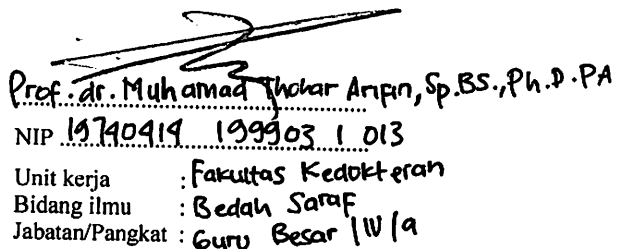 Prof. dr. Muhamad Thohar Arifin, Sp.BS., Ph.D. PA
NIP 19740414 199903 1 013
Unit kerja : Fakultas Kedokteran
Bidang ilmu : Bedah Saraf
Jabatan/Pangkat : Guru Besar / IV / a